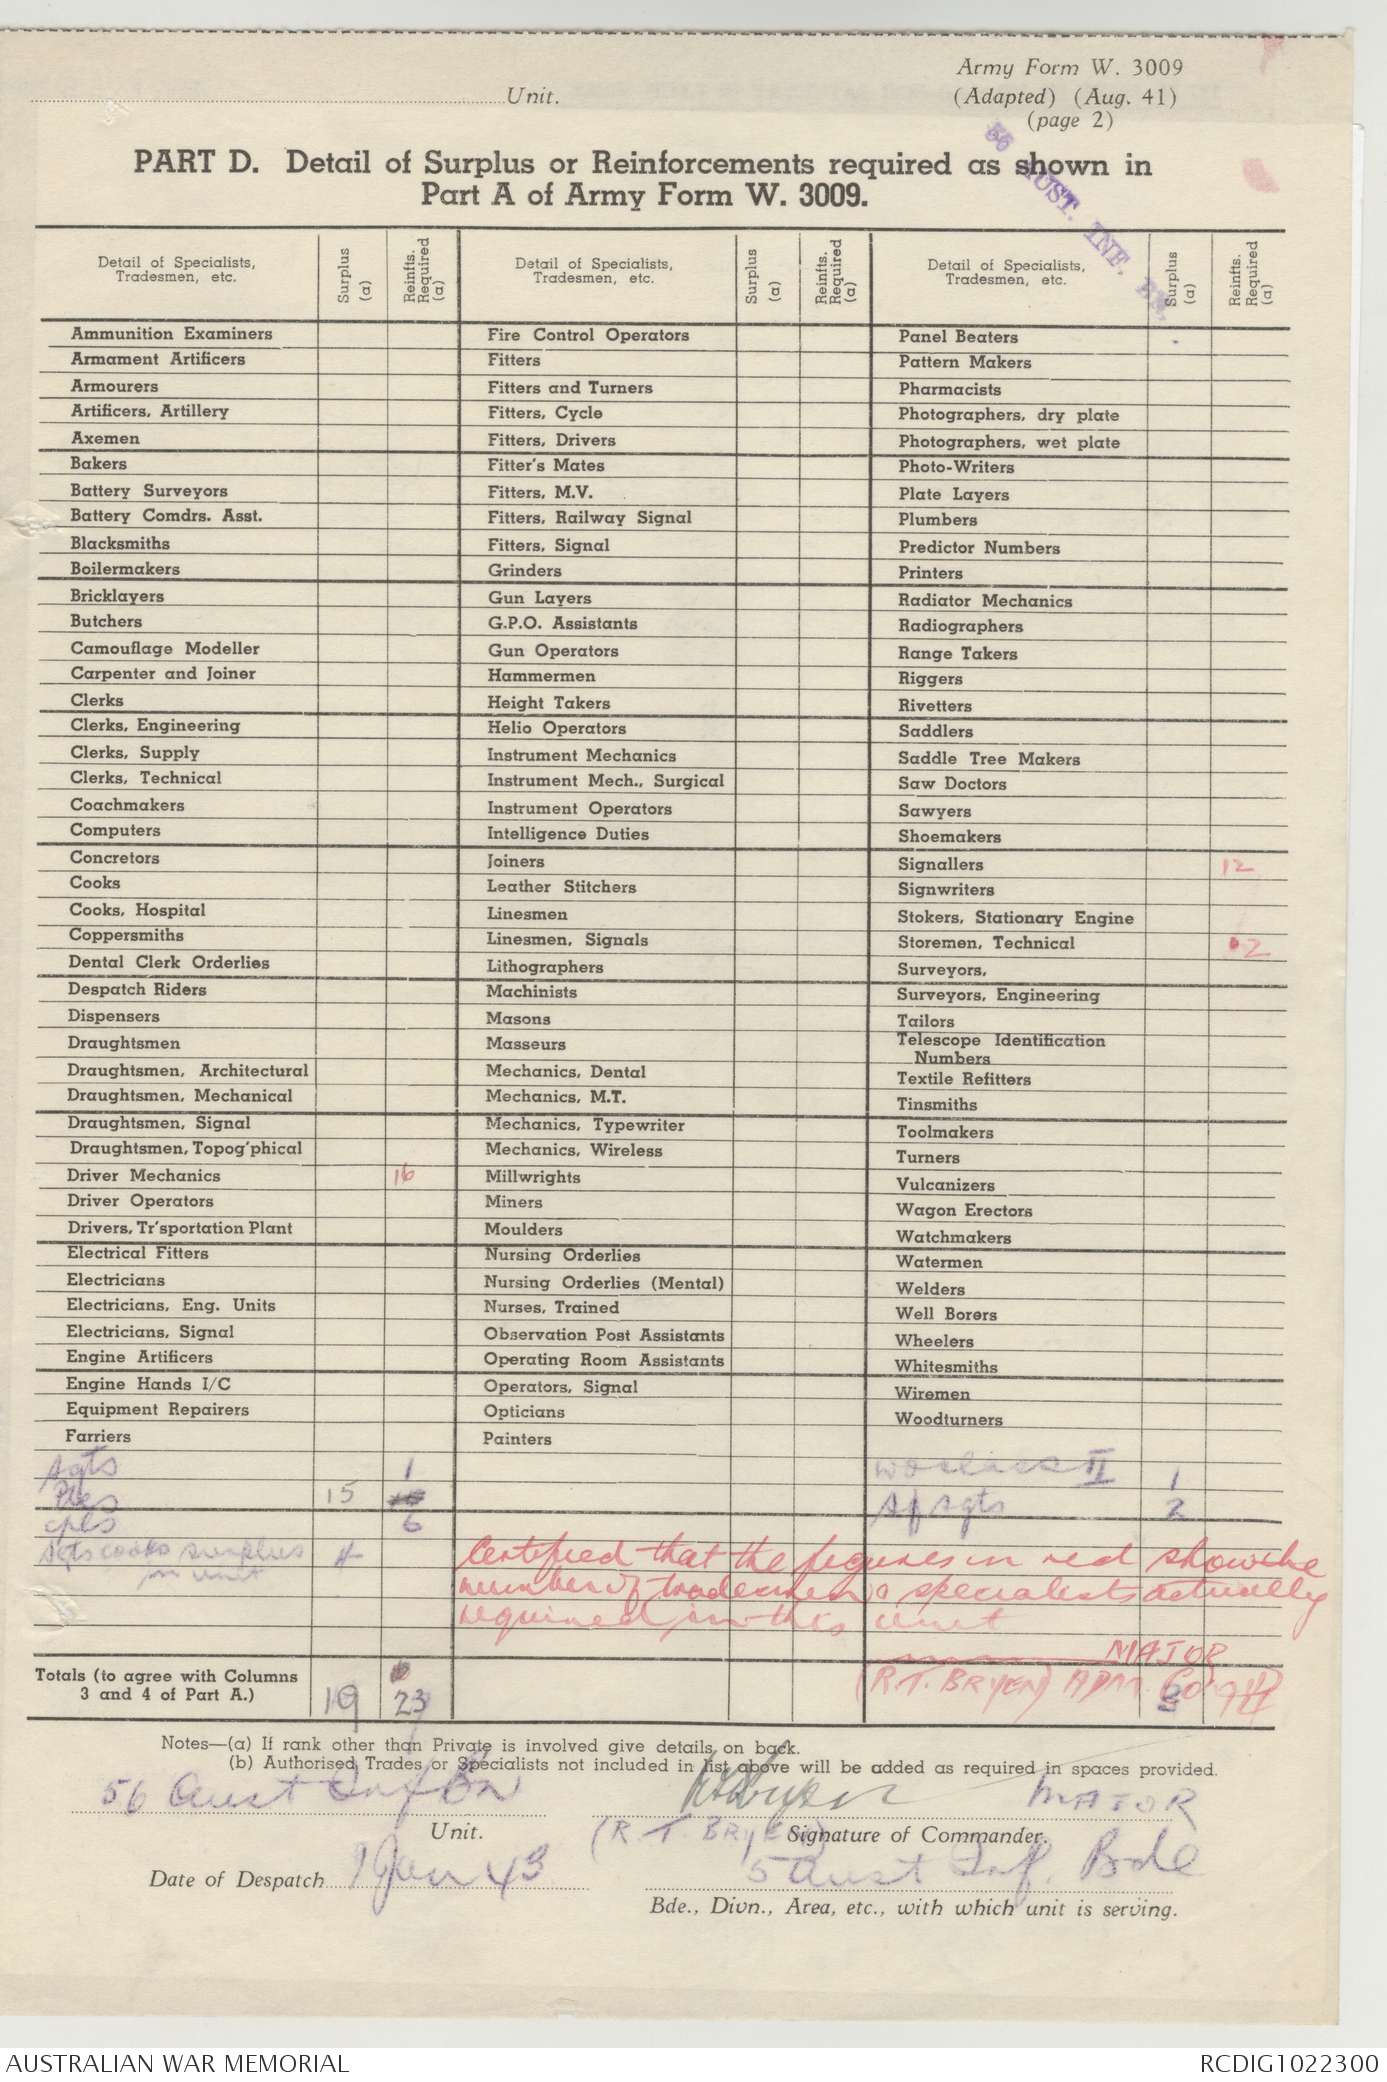 Army Form W. 3009
Unit.
(Adapted) (Aug. 41)
(page 2)
56 AUST. INF. BN.
PART D. Detail of Surplus or Reinforcements required as shown in
Part A of Army Form W. 3009.
Detail of Specialists, Tradesmen, etc. Surplus (a) Reinfts. Required (a) Detail of Specialists, Tradesmen, etc. Surplus (a) Reinfts. Required (a) Detail of Specialists, Tradesmen, etc. Surplus (a) Reinfts. Required (a)
Ammunition Examiners Fire Control Operators Panel Beaters
Armament Artificers Fitters Pattern Makers
Armourers Fitters and Turners Pharmacists
Artificers, Artillery Fitters, Cycle Photographers, dry plate
Axemen Fitters, Drivers Photographers, wet plate
Bakers Fitter's Mates Photo-Writers
Battery Surveyors Fitters, M.V. Plate Layers
Battery Comdrs. Asst. Fitters, Railway Signal Plumbers
Blacksmiths Fitters, Signal Predictor Numbers
Boilermakers Grinders Printers
Bricklayers Gun Layers Radiator Mechanics
Butchers G.P.O. Assistants Radiographers
Camouflage Modeller Gun Operators Range Takers
Carpenter and Joiner Hammermen Riggers
Clerks Height Takers Rivetters
Clerks, Engineering Helio Operators Saddlers
Clerks, Supply Instrument Mechanics Saddle Tree Makers
Clerks, Technical Instrument Mech., Surgical Saw Doctors
Coachmakers Instrument Operators Sawyers
Computers Intelligence Duties Shoemakers
Concretors Joiners Signallers 12
Cooks Leather Stitchers Signwriters
Cooks, Hospital Linesmen Stokers, Stationary Engine
Coppersmiths Linesmen, Signals Storemen, Technical 2
Dental Clerk Orderlies Lithographers Surveyors,
Despatch Riders Machinists Surveyors, Engineering
Dispensers Masons Tailors
Draughtsmen Masseurs Telescope Identification Numbers
Draughtsmen, Architectural Mechanics, Dental Textile Refitters
Draughtsmen, Mechanical Mechanics, M.T. Tinsmiths
Draughtsmen, Signal Mechanics, Typewriter Toolmakers
Draughtsmen, Topog'phical Mechanics, Wireless Turners
Driver Mechanics 16 Millwrights Vulcanizers
Driver Operators Miners Wagon Erectors
Drivers, Tr'sportation Plant Moulders Watchmakers
Electrical Fitters Nursing Orderlies Watermen
Electricians Nursing Orderlies (Mental) Welders
Electricians, Eng. Units Nurses, Trained Well Borers
Electricians, Signal Observation Post Assistants Wheelers
Engine Artificers Operating Room Assistants Whitesmiths
Engine Hands I/C Operators, Signal Wiremen
Equipment Repairers Opticians Woodturners
Farriers Painters
Sgts 1 WO class II 1
Ptes 15 S/Sgts 2
Cpls 6
Sgts cooks surplus 4
in unit
Certified that the figures in red show the
number of tradesmen & specialists actually
required in this unit
MAJOR
(R.T. BRYEN) ADM.
Totals (to agree with Columns
3 and 4 of Part A.) 19 23 3
Notes—(a) If rank other than Private is involved give details on back.
(b) Authorised Trades or Specialists not included in list above will be added as required in spaces provided.
56 Aust Inf Bn MAJOR
Unit. (R. T. BRYEN) Signature of Commander.
Date of Despatch 9 Jan 43 5 Aust Inf. Bde
Bde., Divn., Area, etc., with which unit is serving.
AUSTRALIAN WAR MEMORIAL RCDIG1022300